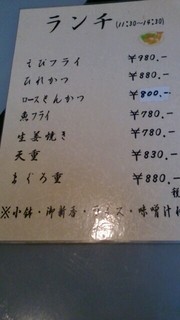 ランチ (11:30~14:30)
えびフライ ¥980.-
ひれかつ ¥880.-
ロースとんかつ ¥800.-
魚フライ ¥780.-
生姜焼き ¥780.-
天重 ¥830.-
まぐろ重 ¥880.-
税
※小鉢・御新香・ライス・味噌汁